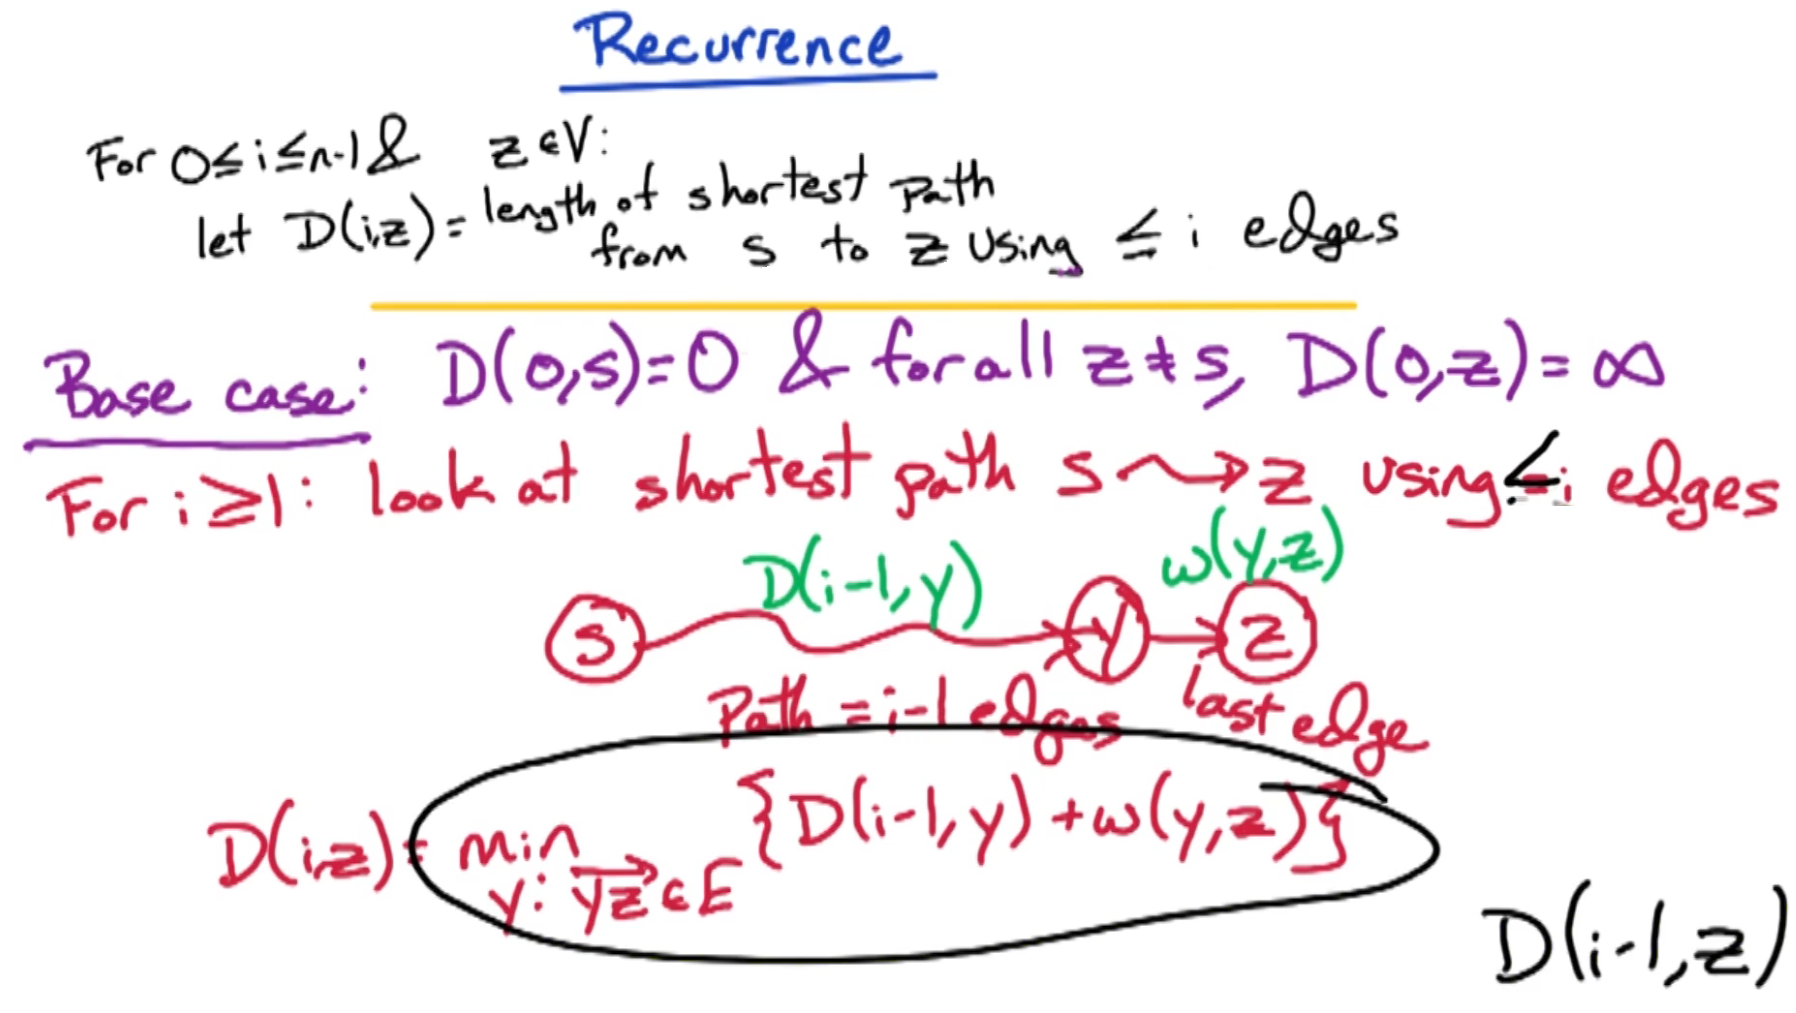 Recurrence
For 0≤i≤n-1 & z∈V:
let D(i,z) = length of shortest path
from s to z using ≤ i edges
Base case: D(0,s)=0 & for all z≠s, D(0,z)=∞
For i≥1: look at shortest path s⇝z using ≤i edges
D(i-1,y) w(y,z)
s y z
Path = i-1 edges last edge
D(i,z) = min {D(i-1,y) + w(y,z)}
y: yz∈E
D(i-1,z)